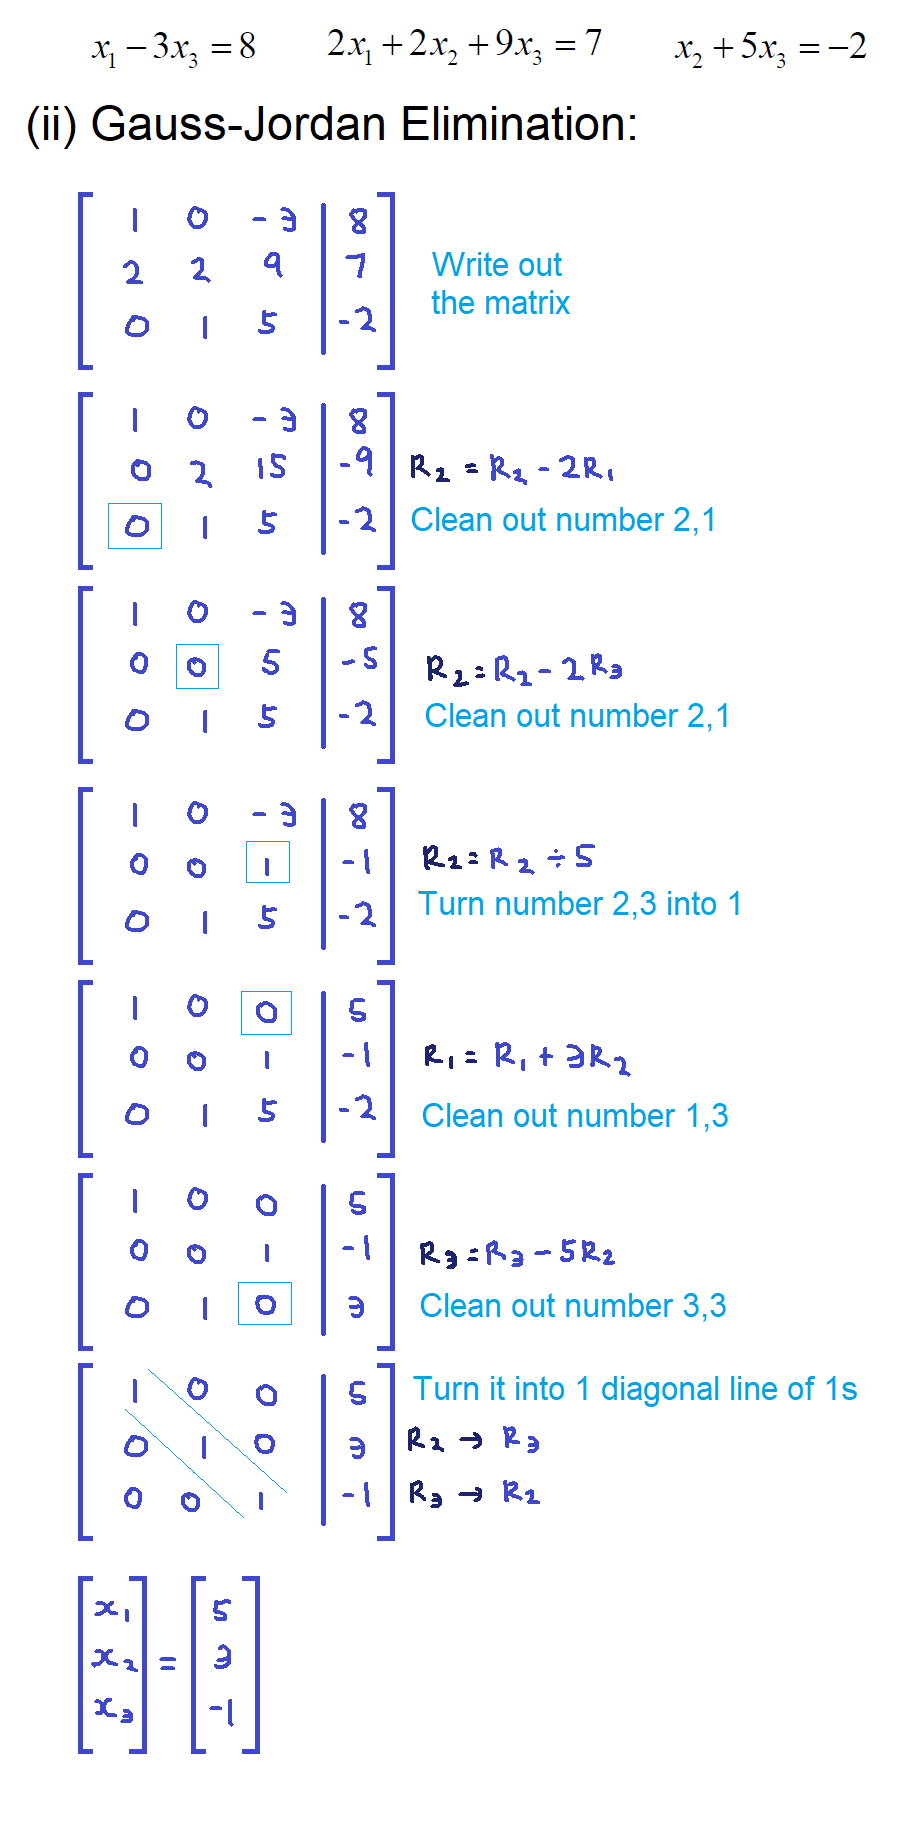 x₁ − 3x₃ = 8    2x₁ + 2x₂ + 9x₃ = 7    x₂ + 5x₃ = −2
(ii) Gauss-Jordan Elimination:
1 0 -3 | 8
2 2 9 | 7
0 1 5 | -2
Write out
the matrix
1 0 -3 | 8
0 2 15 | -9
0 1 5 | -2
R₂ = R₂ - 2R₁
Clean out number 2,1
1 0 -3 | 8
0 0 5 | -5
0 1 5 | -2
R₂ = R₂ - 2R₃
Clean out number 2,1
1 0 -3 | 8
0 0 1 | -1
0 1 5 | -2
R₂ = R₂ ÷ 5
Turn number 2,3 into 1
1 0 0 | 5
0 0 1 | -1
0 1 5 | -2
R₁ = R₁ + 3R₂
Clean out number 1,3
1 0 0 | 5
0 0 1 | -1
0 1 0 | 3
R₃ = R₃ - 5R₂
Clean out number 3,3
1 0 0 | 5
0 1 0 | 3
0 0 1 | -1
Turn it into 1 diagonal line of 1s
R₂ → R₃
R₃ → R₂
x₁   5
x₂ = 3
x₃   -1